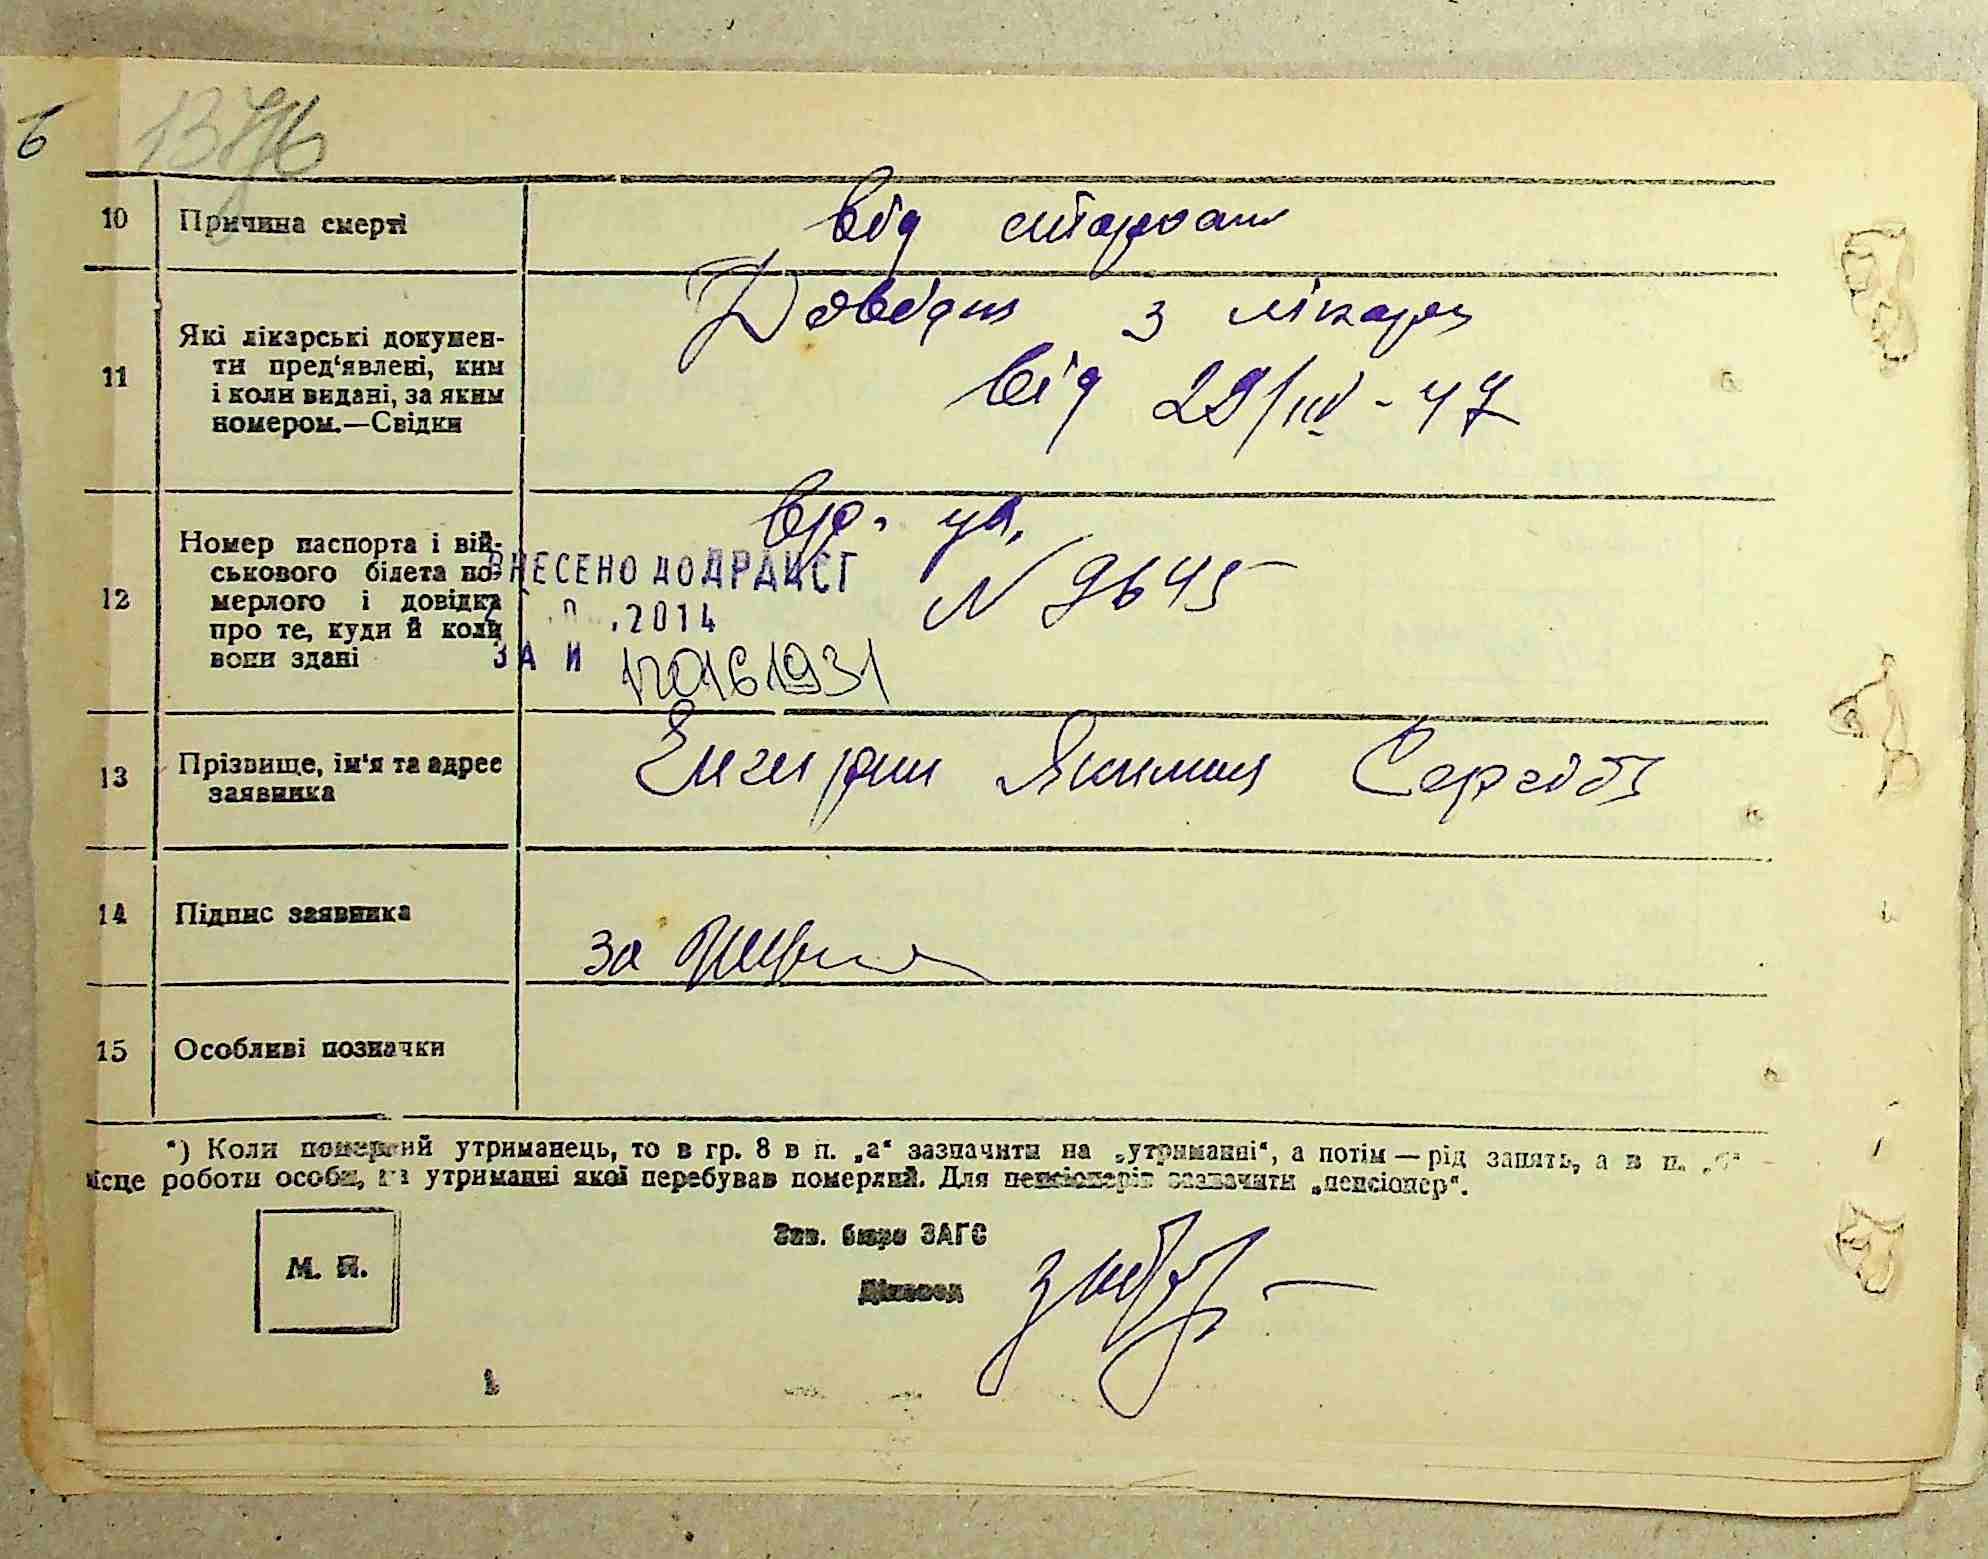 10 Причина смерті від старости
11 Які лікарські докумен-
ти пред‘явлені, ким
і коли видані, за яким
номером.—Свідки
Довідка з лікарн
від 29/IV - 47
12 Номер паспорта і вій-
ськового білета по-
мерлого і довідка
про те, куди й коли
вони здані
вр. уд.
N 9645
ВНЕСЕНО ДО ДРАЦСГ
.2014
ЗА И
13 Прізвище, ім‘я та адрес
заявника
14 Підпис заявника
за
15 Особливі позначки
*) Коли померлий утриманець, то в гр. 8 в п. „а“ зазначити на „утриманні“, а потім — рід занять, а в п. „б“
місце роботи особи, на утриманні якої перебував померлий. Для пенсіонерів зазначити „пенсіонер“.
Зав. бюро ЗАГС
М. П.
Діловод